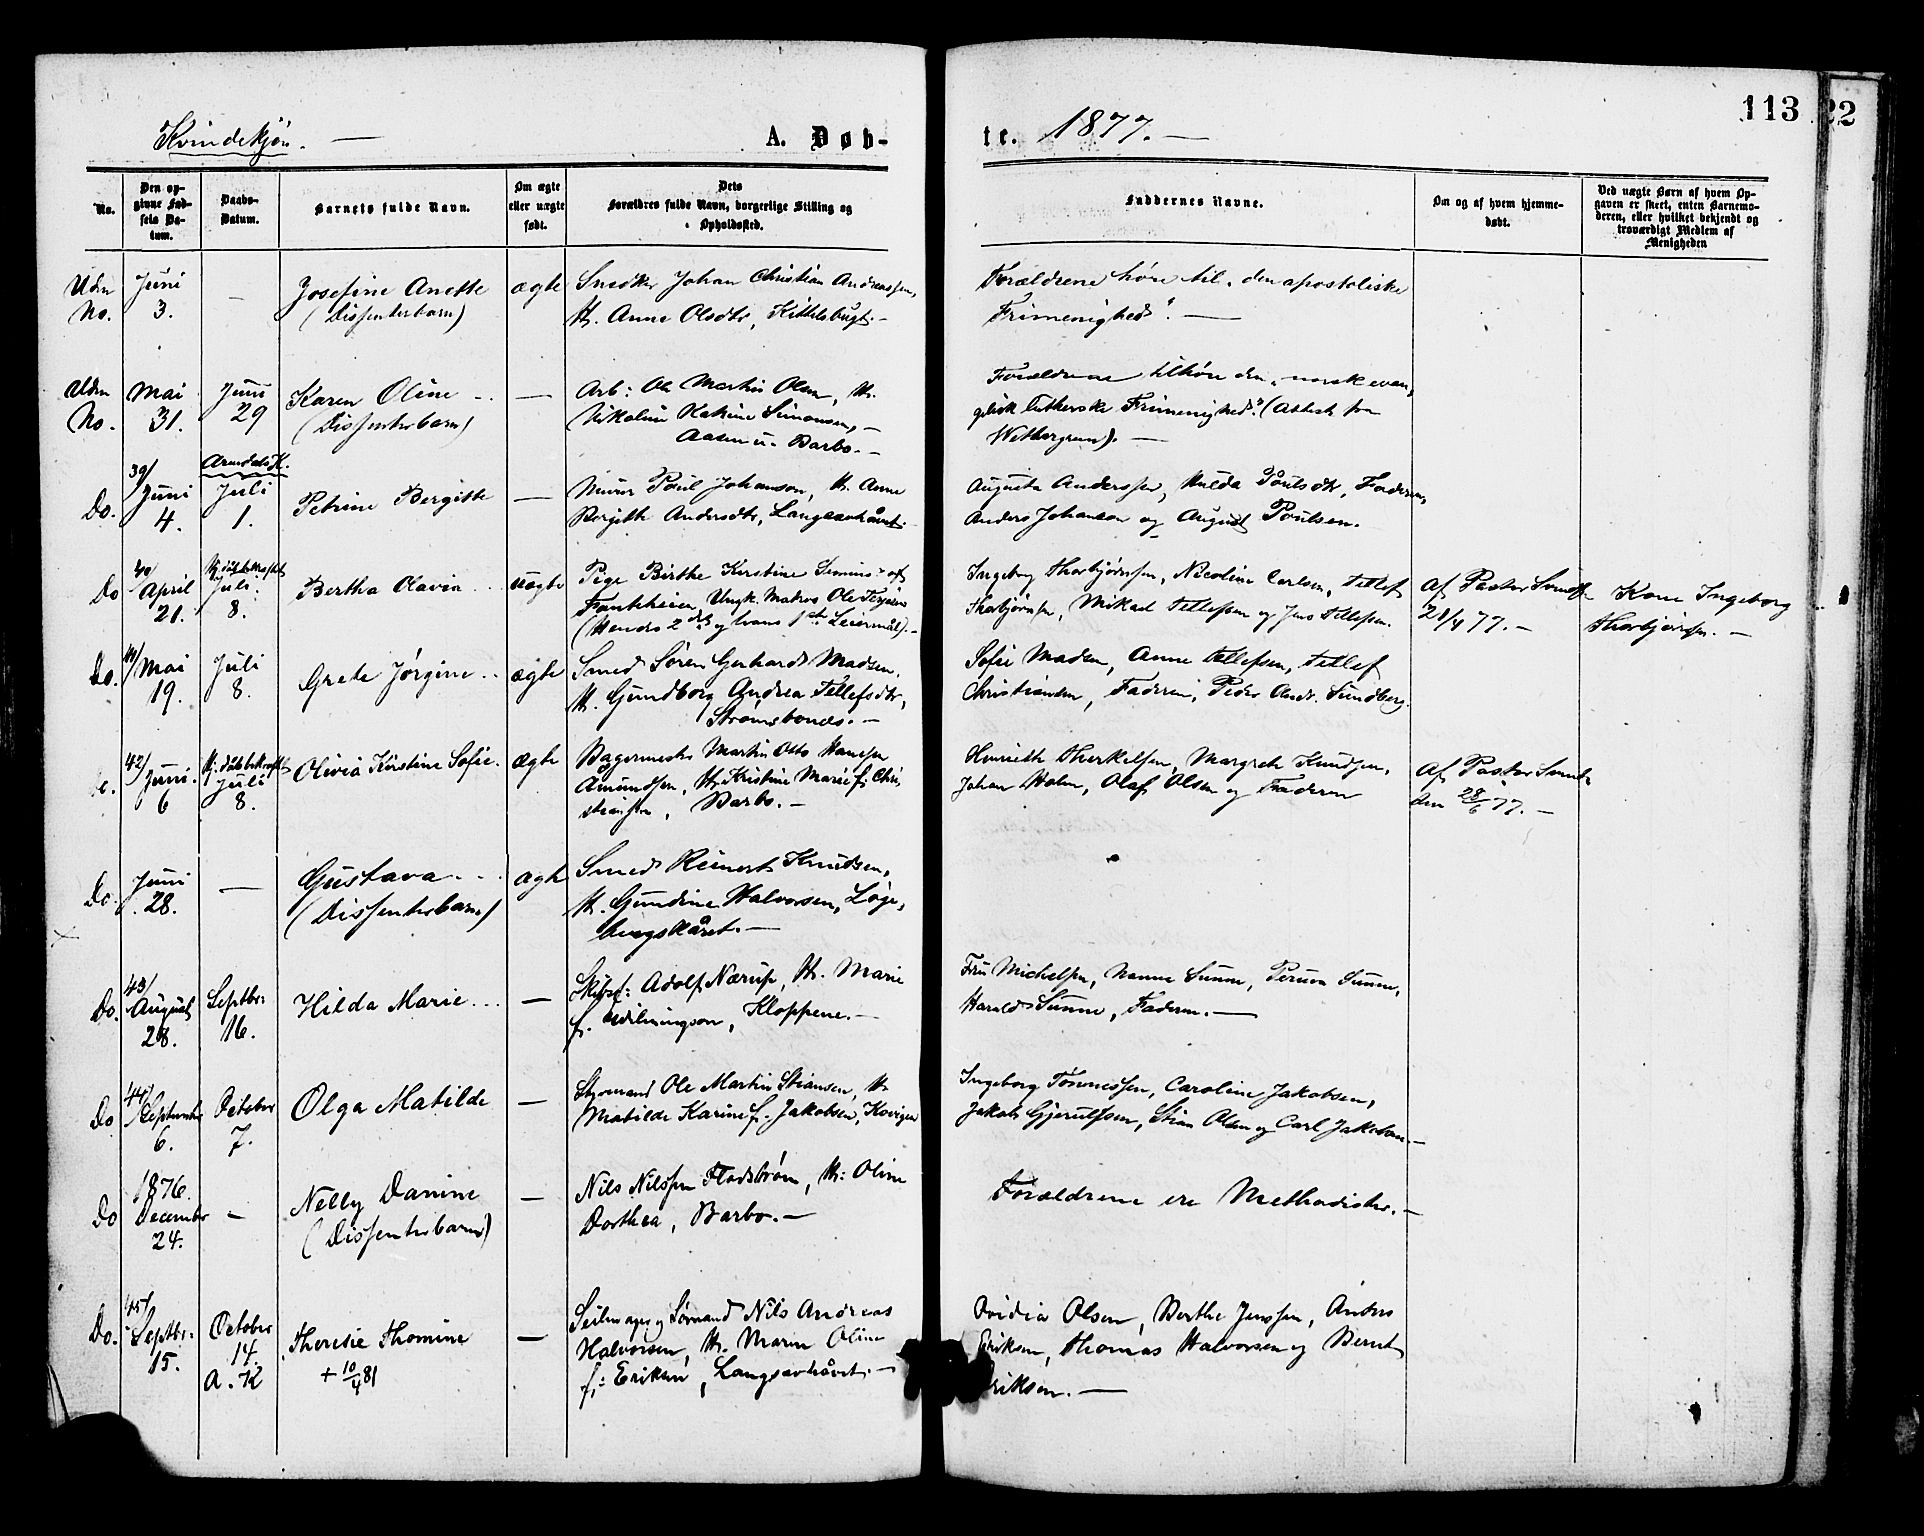 Kvindekjøn. —
A. Døb-
te. 1877. —
113
22
No.
Den op-
givne Fød-
sels Da-
tum.
Daabs-
Datum.
Barnets fulde Navn.
Om ægte
eller uægte
født.
Dets
Forældres fulde Navn, borgerlige Stilling og
Opholdssted.
Faddernes Navne.
Om og af hvem hjemme-
døbt.
Ved uægte Børn af hvem Op-
gaven er skeet, enten Barnemo-
deren, eller hvilket bekjendt og
troværdigt Medlem af
Menigheden
Uden
No.
Juni
3.
—
Josefine Anette
(Dissenterbarn)
ægte
Snedker Johan Christian Andreassen,
H. Anne Olsdtr, Kittelsbugt. —
Forældrene høre til "den apostoliske
Frimenighed". —
Uden
No.
Mai
31.
Juni
29
Karen Oline
(Dissenterbarn)
—
Arb: Ole Martin Olsen, H.
Nikoline Katrine Simonsen, —
Aasen u. Barbo. —
Forældrene tilhøre den "norsk evan-
gelisk lutherske Frimenighed". (Attest fra
Wettergreen). —
Do.
39/
Juni
4.
Arendals K.
Juli
1.
Petrine Bergitte
—
Murer Poul Johanson, H. Anne
Bergitte Andersdtr, Langsævhåvet. —
Augusta Anderssen, Hulda Poulsdtr, Faderen,
Anders Johanson og August Poulsen.
Do
40/
April
21.
Hj.døb bekræftet
Juli
8.
Bertha Olavia
uægte
Pige Birthe Kirstine af
Ungk. Matros Ole Terjesen
(Hendes 2det og hans 1ste Leiermål). —
Ingeborg Thorbjørnsen, Nicoline Carlsen, Tellef
Thorbjørnsen, Mikael Tellefsen og Jens Tellefsen.
Af Pastor
28/4 77. —
Kone Ingeborg
Thorbjørnsen. —
Do.
41/
Mai
19.
Juli
8.
Grete Jørgine
ægte
Smed Søren Gerhard Madsen,
H. Gundborg Andrea Tellefsdtr,
Strømsbones. —
Sofie Madsen, Anne Tellefsen, Tellef
Christiansen, Faderen, Peder Andr. Sundberg.
42/
Juni
6
Hj.døb bekræftet
Juli
8.
Olivia Kirstine Sofie.
ægte
Bagermester Martin Otto Hansen
Åmundsen, H. Kristine Marie f. Chri-
stiansen, Barbo. —
Henriette Therkelsen, Margrete Knudsen,
Johan Holm, Olaf Olsen og Faderen
Af Pastor
den 28/6 77. —
Do.
Juni
28.
—
Gustava
(Dissenterbarn)
ægte
Smed Reinert Knudsen,
H. Gundine Halvorsen, Løge-
bergskåret. —
Do.
43/
August
28.
Septbr:
16.
Hilda Marie
—
Skibsf: Adolf Nærup, H. Marie
f. Wilmingson, Kloppene. —
Fru Michelsen, Nanna Sunne, Sunne,
Harald Sunne, Faderen. —
Do
44/
September
6.
October
7.
Olga Matilde
—
Styrmand Ole Martin Stiansen, H.
Matilde Karine f. Jakobsen, Kvigen
Ingeborg Tønnessen, Caroline Jakobsen,
Jakob Gjerulfsen, Stian Olsen og Carl Jakobsen. —
Do
1876.
December
24.
—
Nelly Danine
(Dissenterbarn)
—
Nils Nilssen Flodstrøm, H: Oline
Dorthea, Barbo. —
Forældrene ere Methodister. —
Do.
45/
Septbr:
15.
October
14.
A. K
Theresie Thomine
+ 10/4 81
—
Seilmager og Sømand Nils Andreas
Halvorsen, H. Maren Oline
f: Eriksen, Langsævhåvet. —
Ovidia Olsen, Berthe Jenssen, Anders
Eriksen, Thomas Halvorsen og Bernt
Eriksen. —